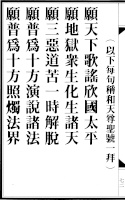 （以下每句稱和天尊聖號一拜）
願天下歌謠欣國太平
願地獄衆生化生諸天
願三惡道苦一時解脫
願普為十方演說諸法
願普為十方照燭法界